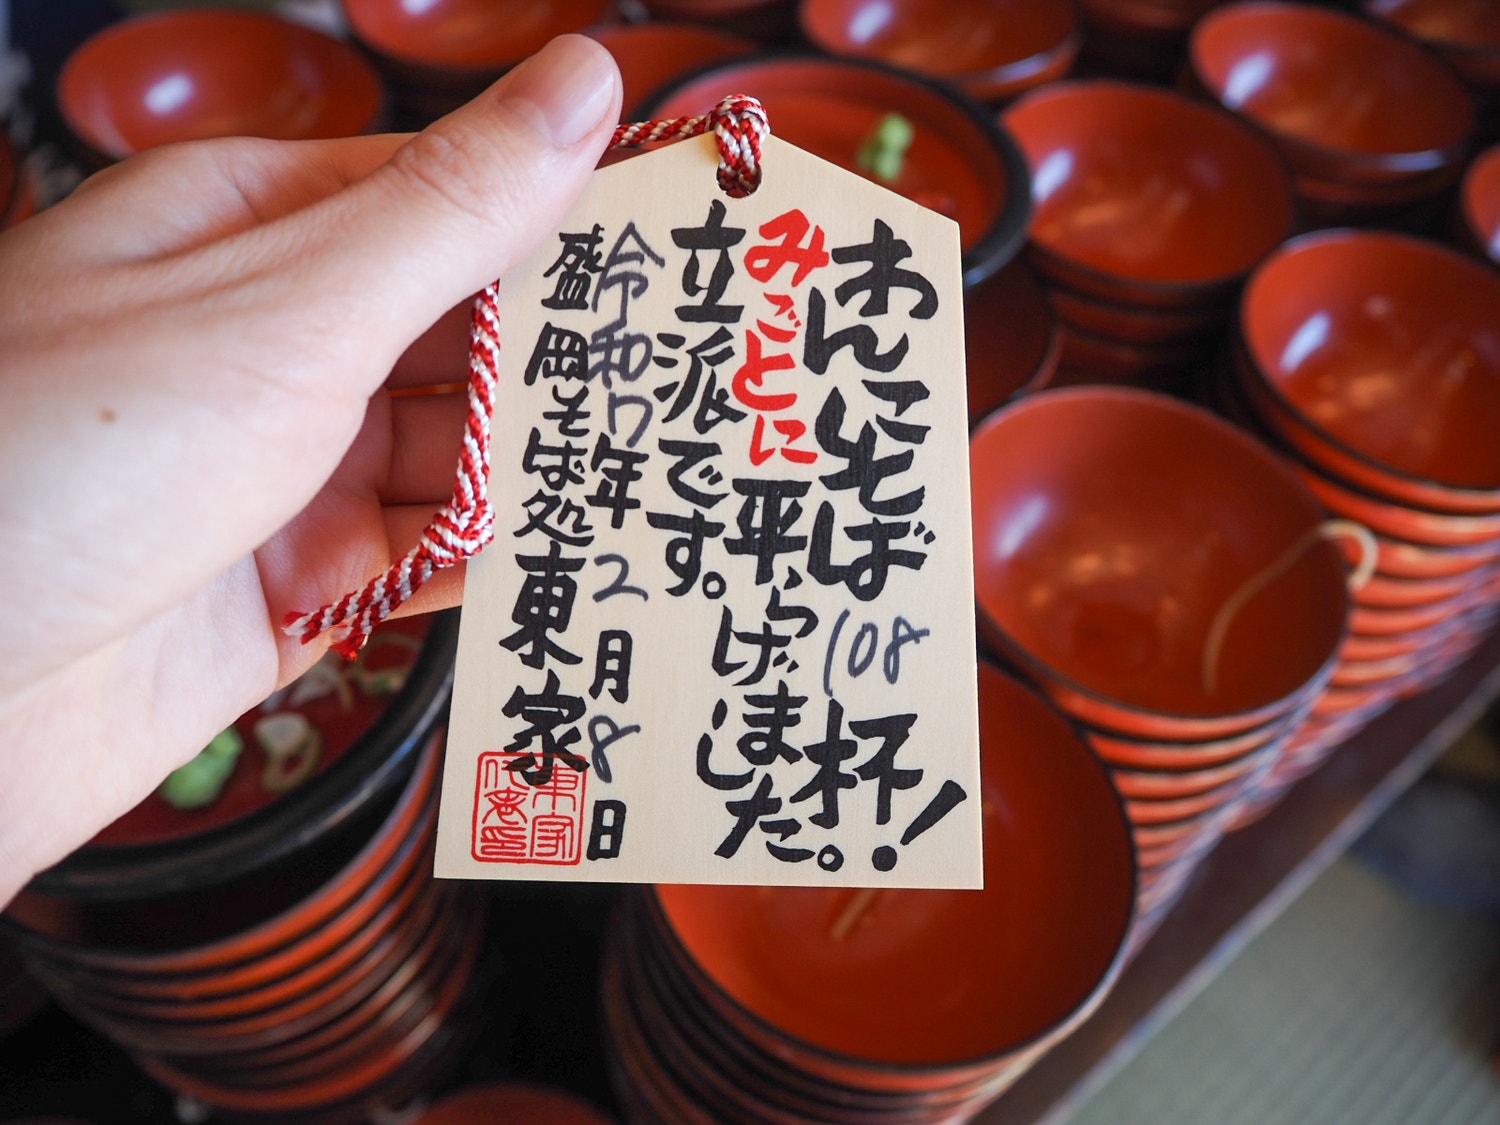 わんにそば108杯!
みごとに平らげました。
立派です。
令和7年2月8日
盛岡そば処東家